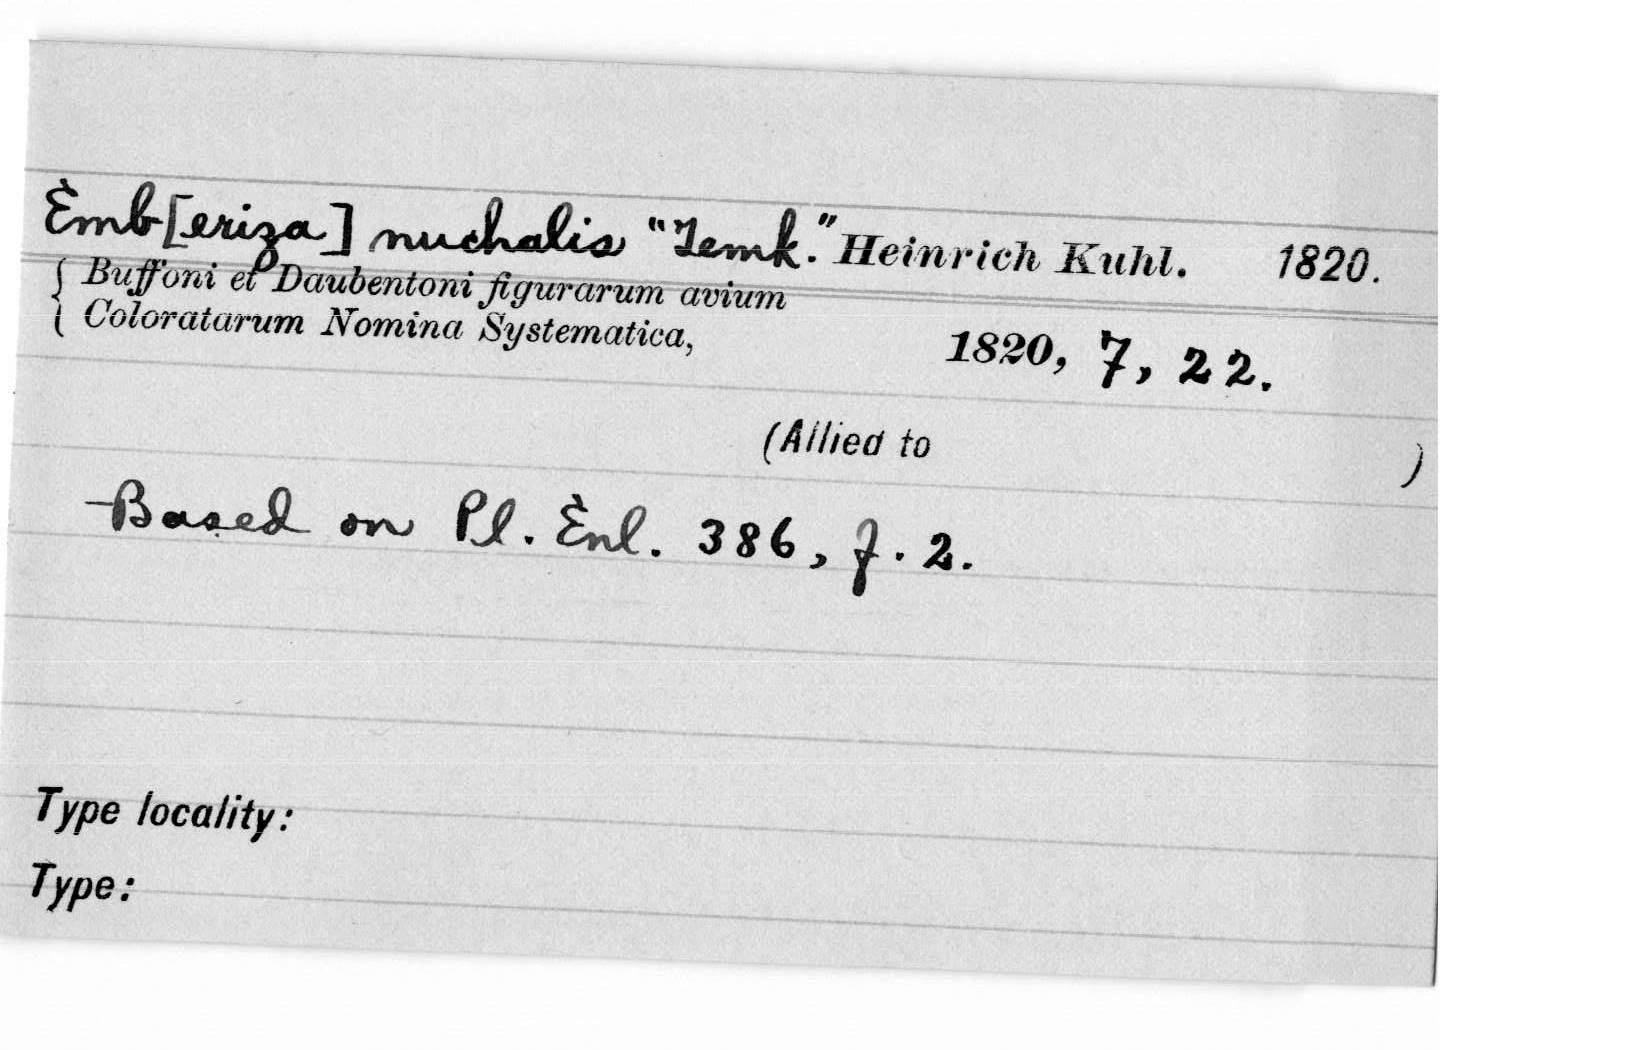 Emb[eriza] nuchalis "Temk." Heinrich Kuhl. 1820.
{ Buffoni et Daubentoni figurarum avium
{ Coloratarum Nomina Systematica,
1820, 7, 22.
(Allied to )
Based on Pl. Enl. 386, f. 2.
Type locality:
Type: